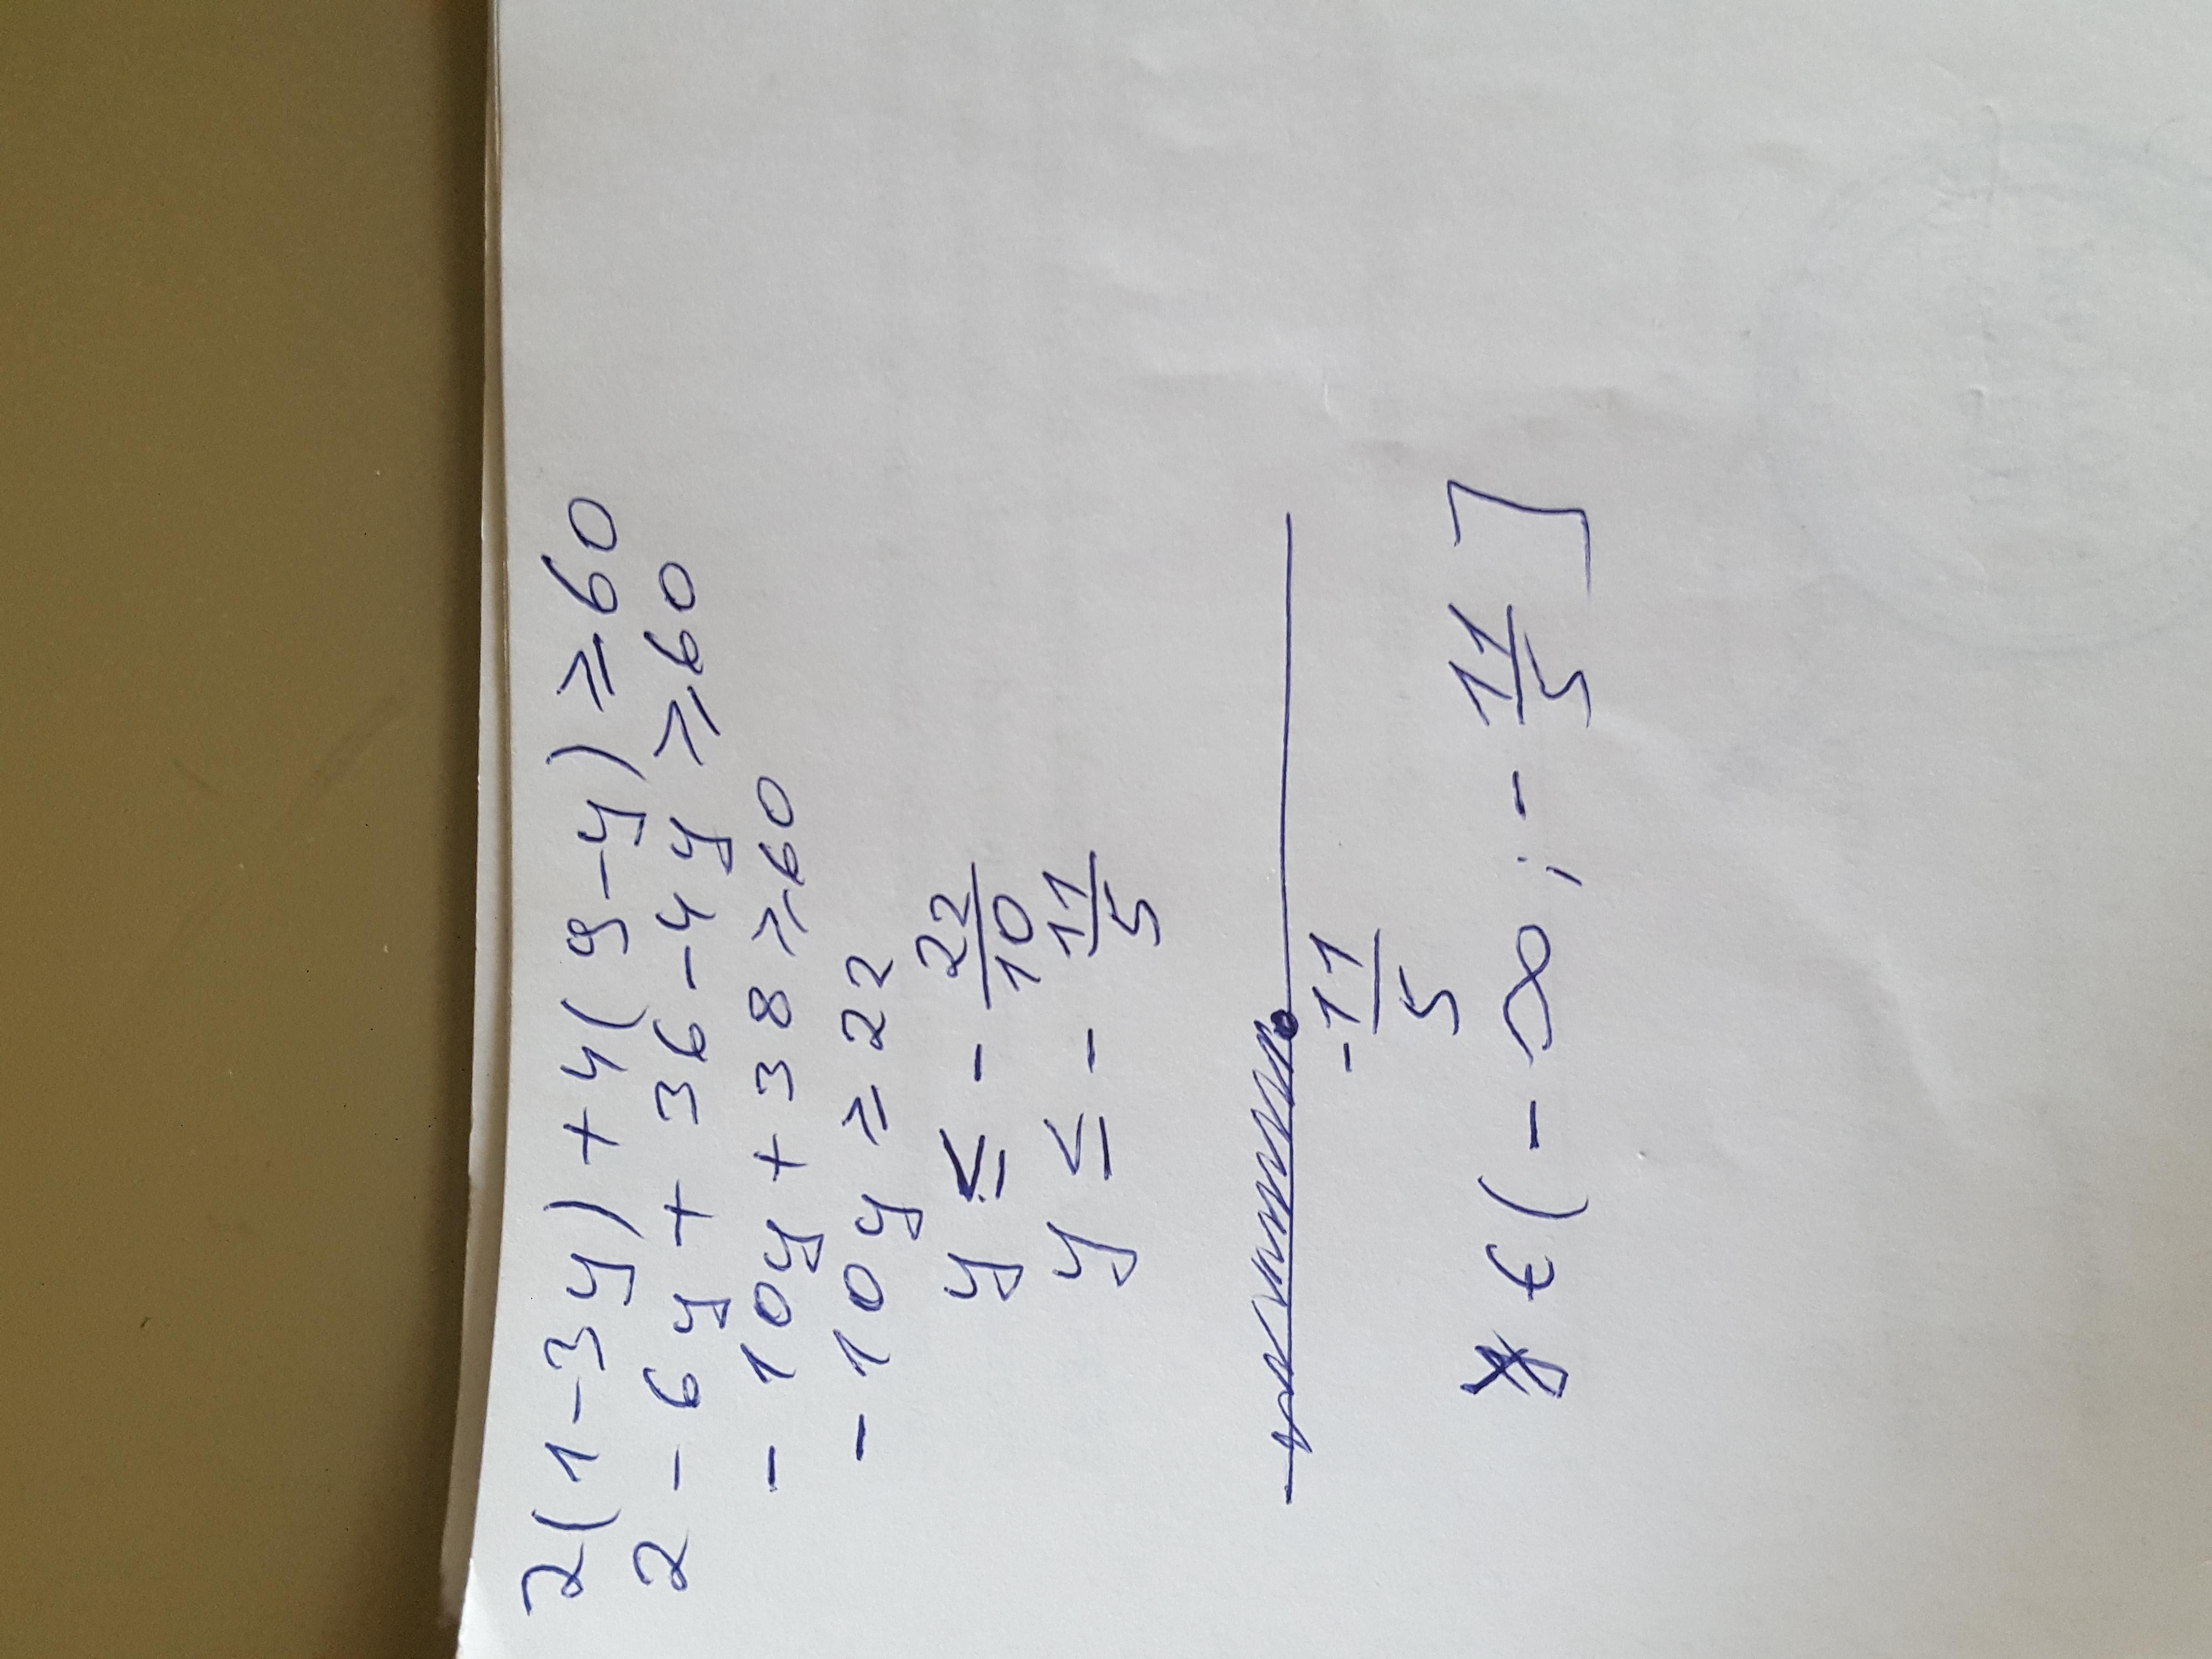 2(1-3y)+4(9-y)≥60
2-6y+36-4y≥60
-10y+38≥60
-10y≥22
y≤-22/10
y≤-11/5
-11/5
y∈(-∞;-11/5]